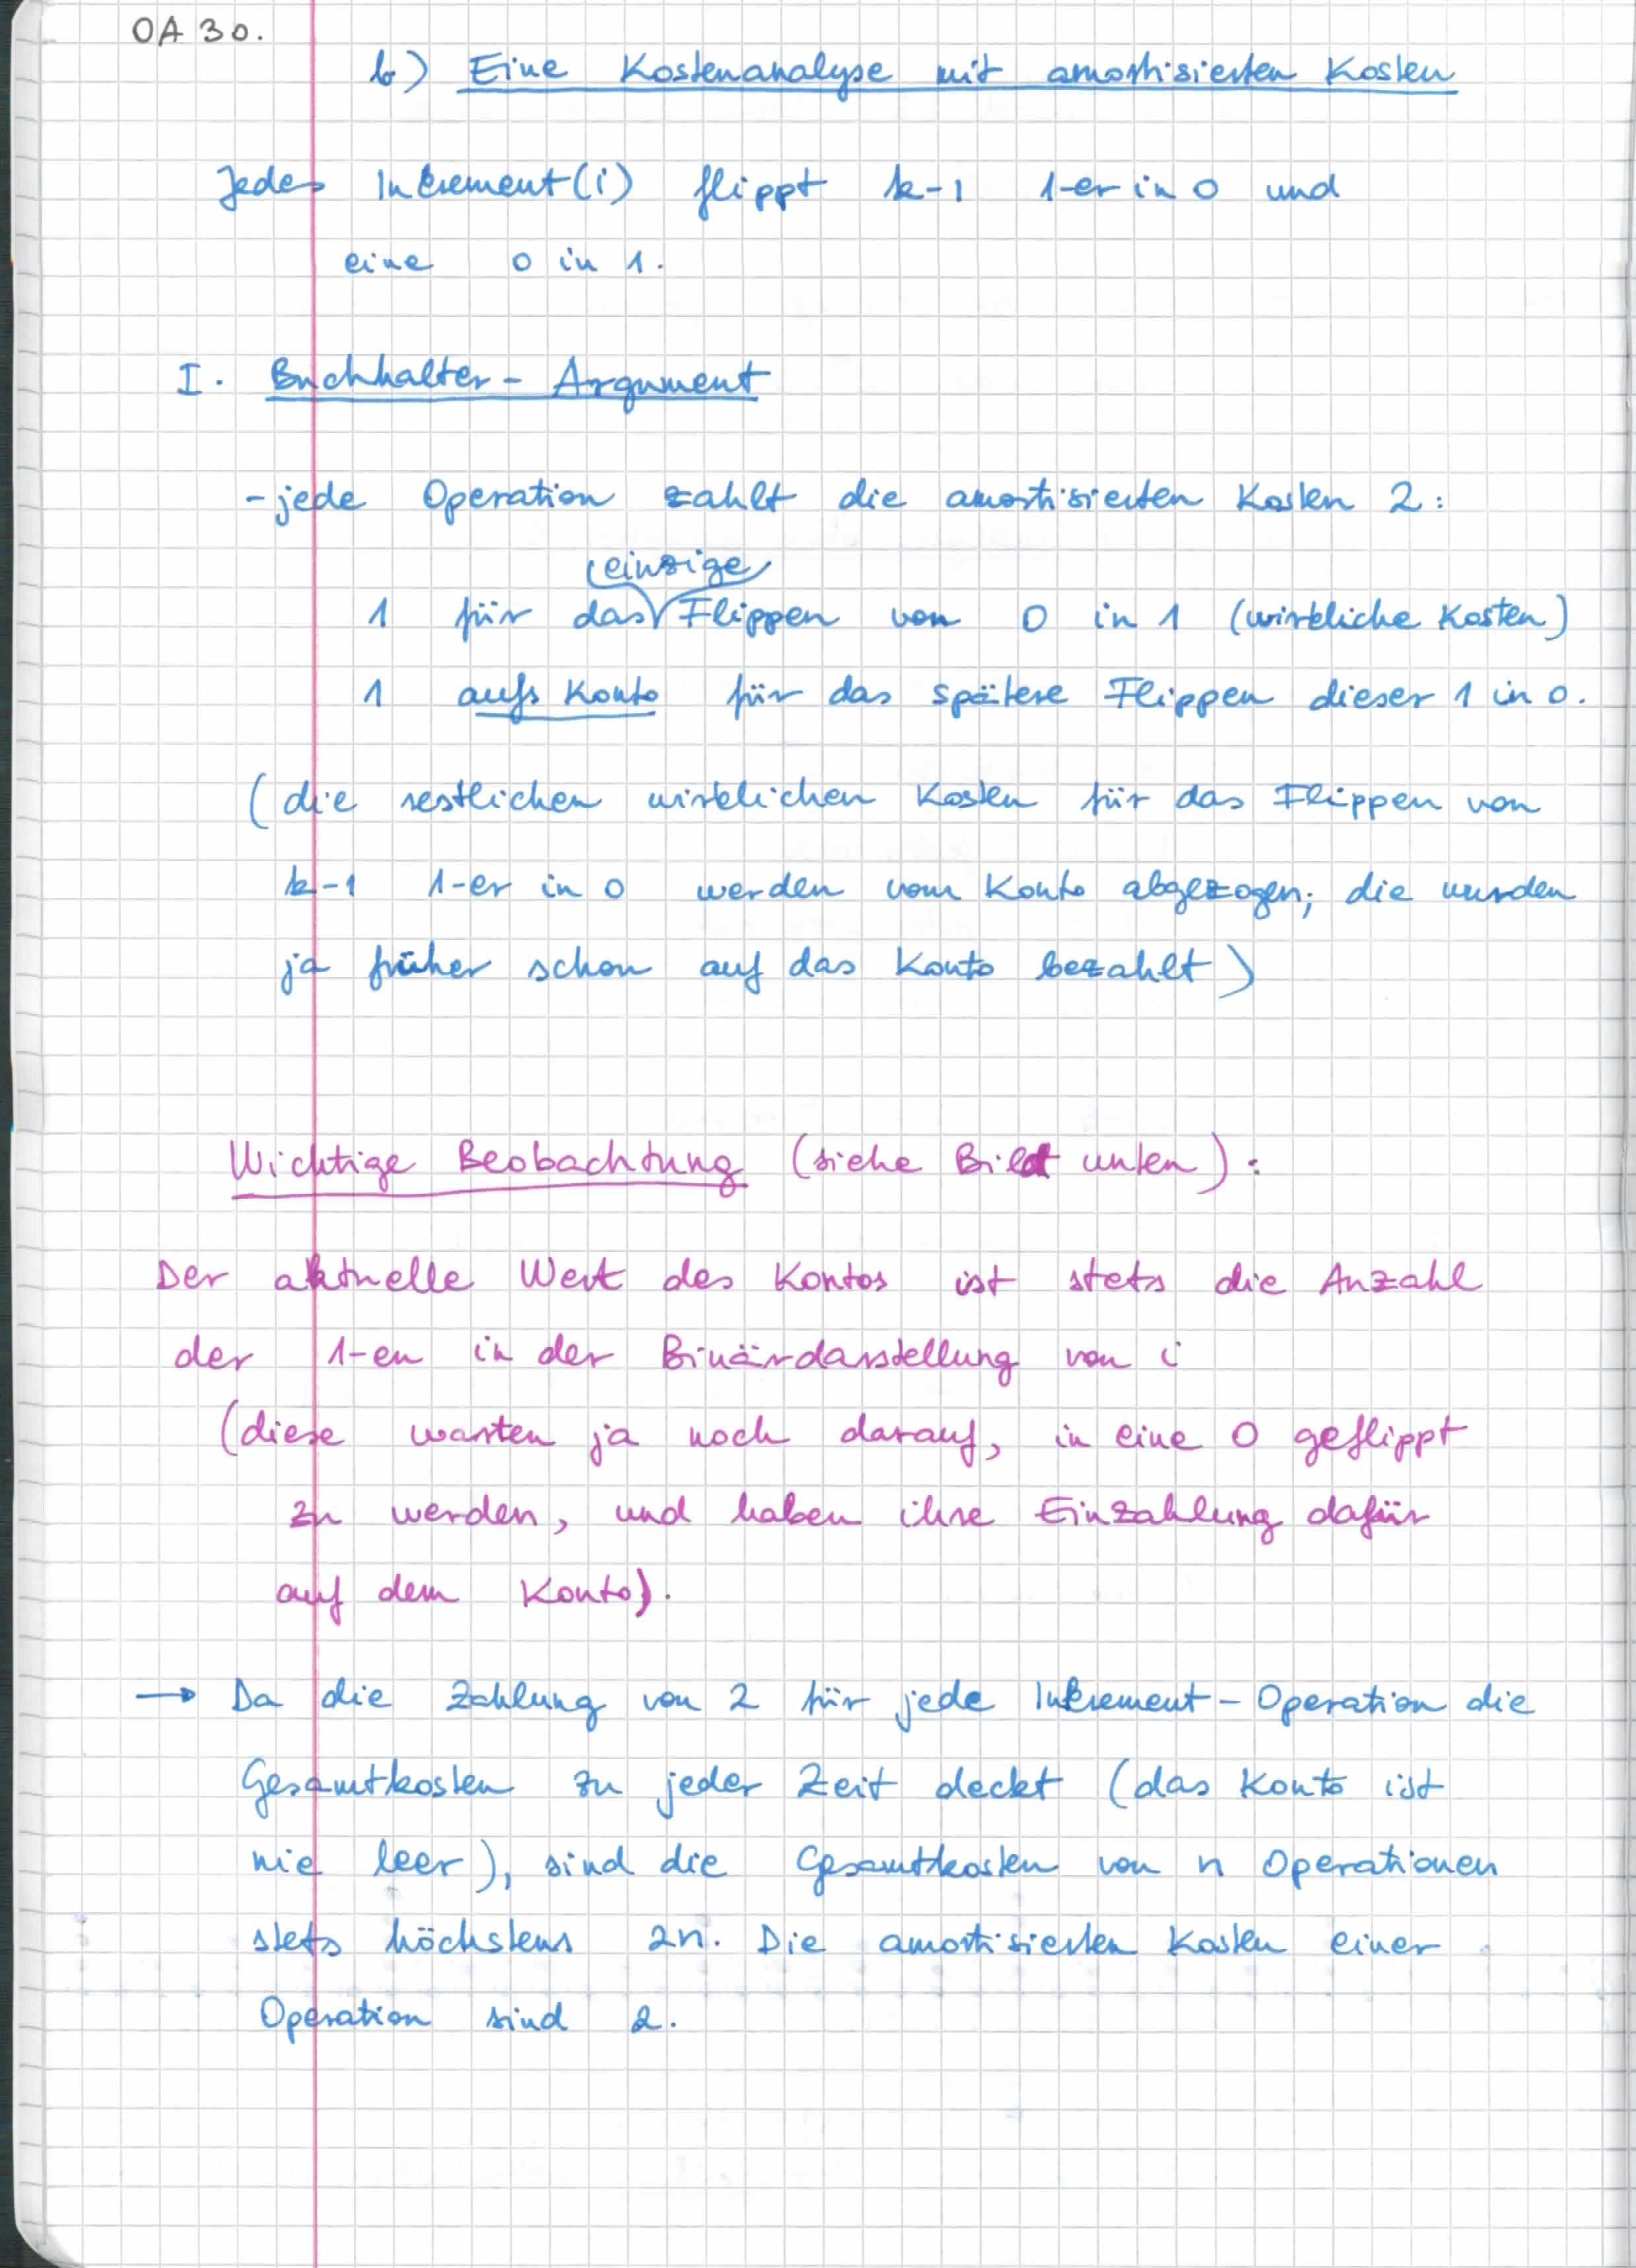 OA 30.
b) Eine Kostenanalyse mit amortisierten Kosten
Jedes Inkrement(i) flippt k-1 1-er in 0 und
eine 0 in 1.
I. Buchhalter-Argument
- jede Operation zahlt die amortisierten Kosten 2:
einzige
1 für das Flippen von 0 in 1 (wirkliche Kosten)
1 aufs Konto für das spätere Flippen dieser 1 in 0.
(die restlichen wirklichen Kosten für das Flippen von
k-1 1-er in 0 werden vom Konto abgezogen; die wurden
ja früher schon auf das Konto bezahlt)
Wichtige Beobachtung (siehe Bild unten):
Der aktuelle Wert des Kontos ist stets die Anzahl
der 1-en in der Binärdarstellung von i
(diese warten ja noch darauf, in eine 0 geflippt
zu werden, und haben ihre Einzahlung dafür
auf dem Konto).
→ Da die Zahlung von 2 für jede Inkrement-Operation die
Gesamtkosten zu jeder Zeit deckt (das Konto ist
nie leer), sind die Gesamtkosten von n Operationen
stets höchstens 2n. Die amortisierten Kosten einer
Operation sind 2.